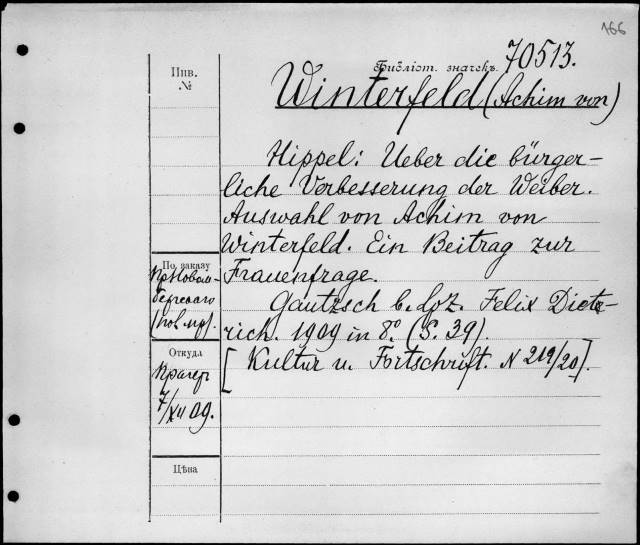 166
Библіот. значекъ. 70513.
Winterfeld (Achim von)
Hippel: Ueber die bürger-
liche Verbesserung der Weiber.
Auswahl von Achim von
Winterfeld. Ein Beitrag zur
Frauenfrage.
Gautzsch b. Lpz. Felix Diete-
rich. 1909 in 8° (S. 39).
[Kultur u. Fortschrift. N 219/20].
Инв.
№
По заказу
Откуда
Прагеръ
7/XII 09.
Цѣна